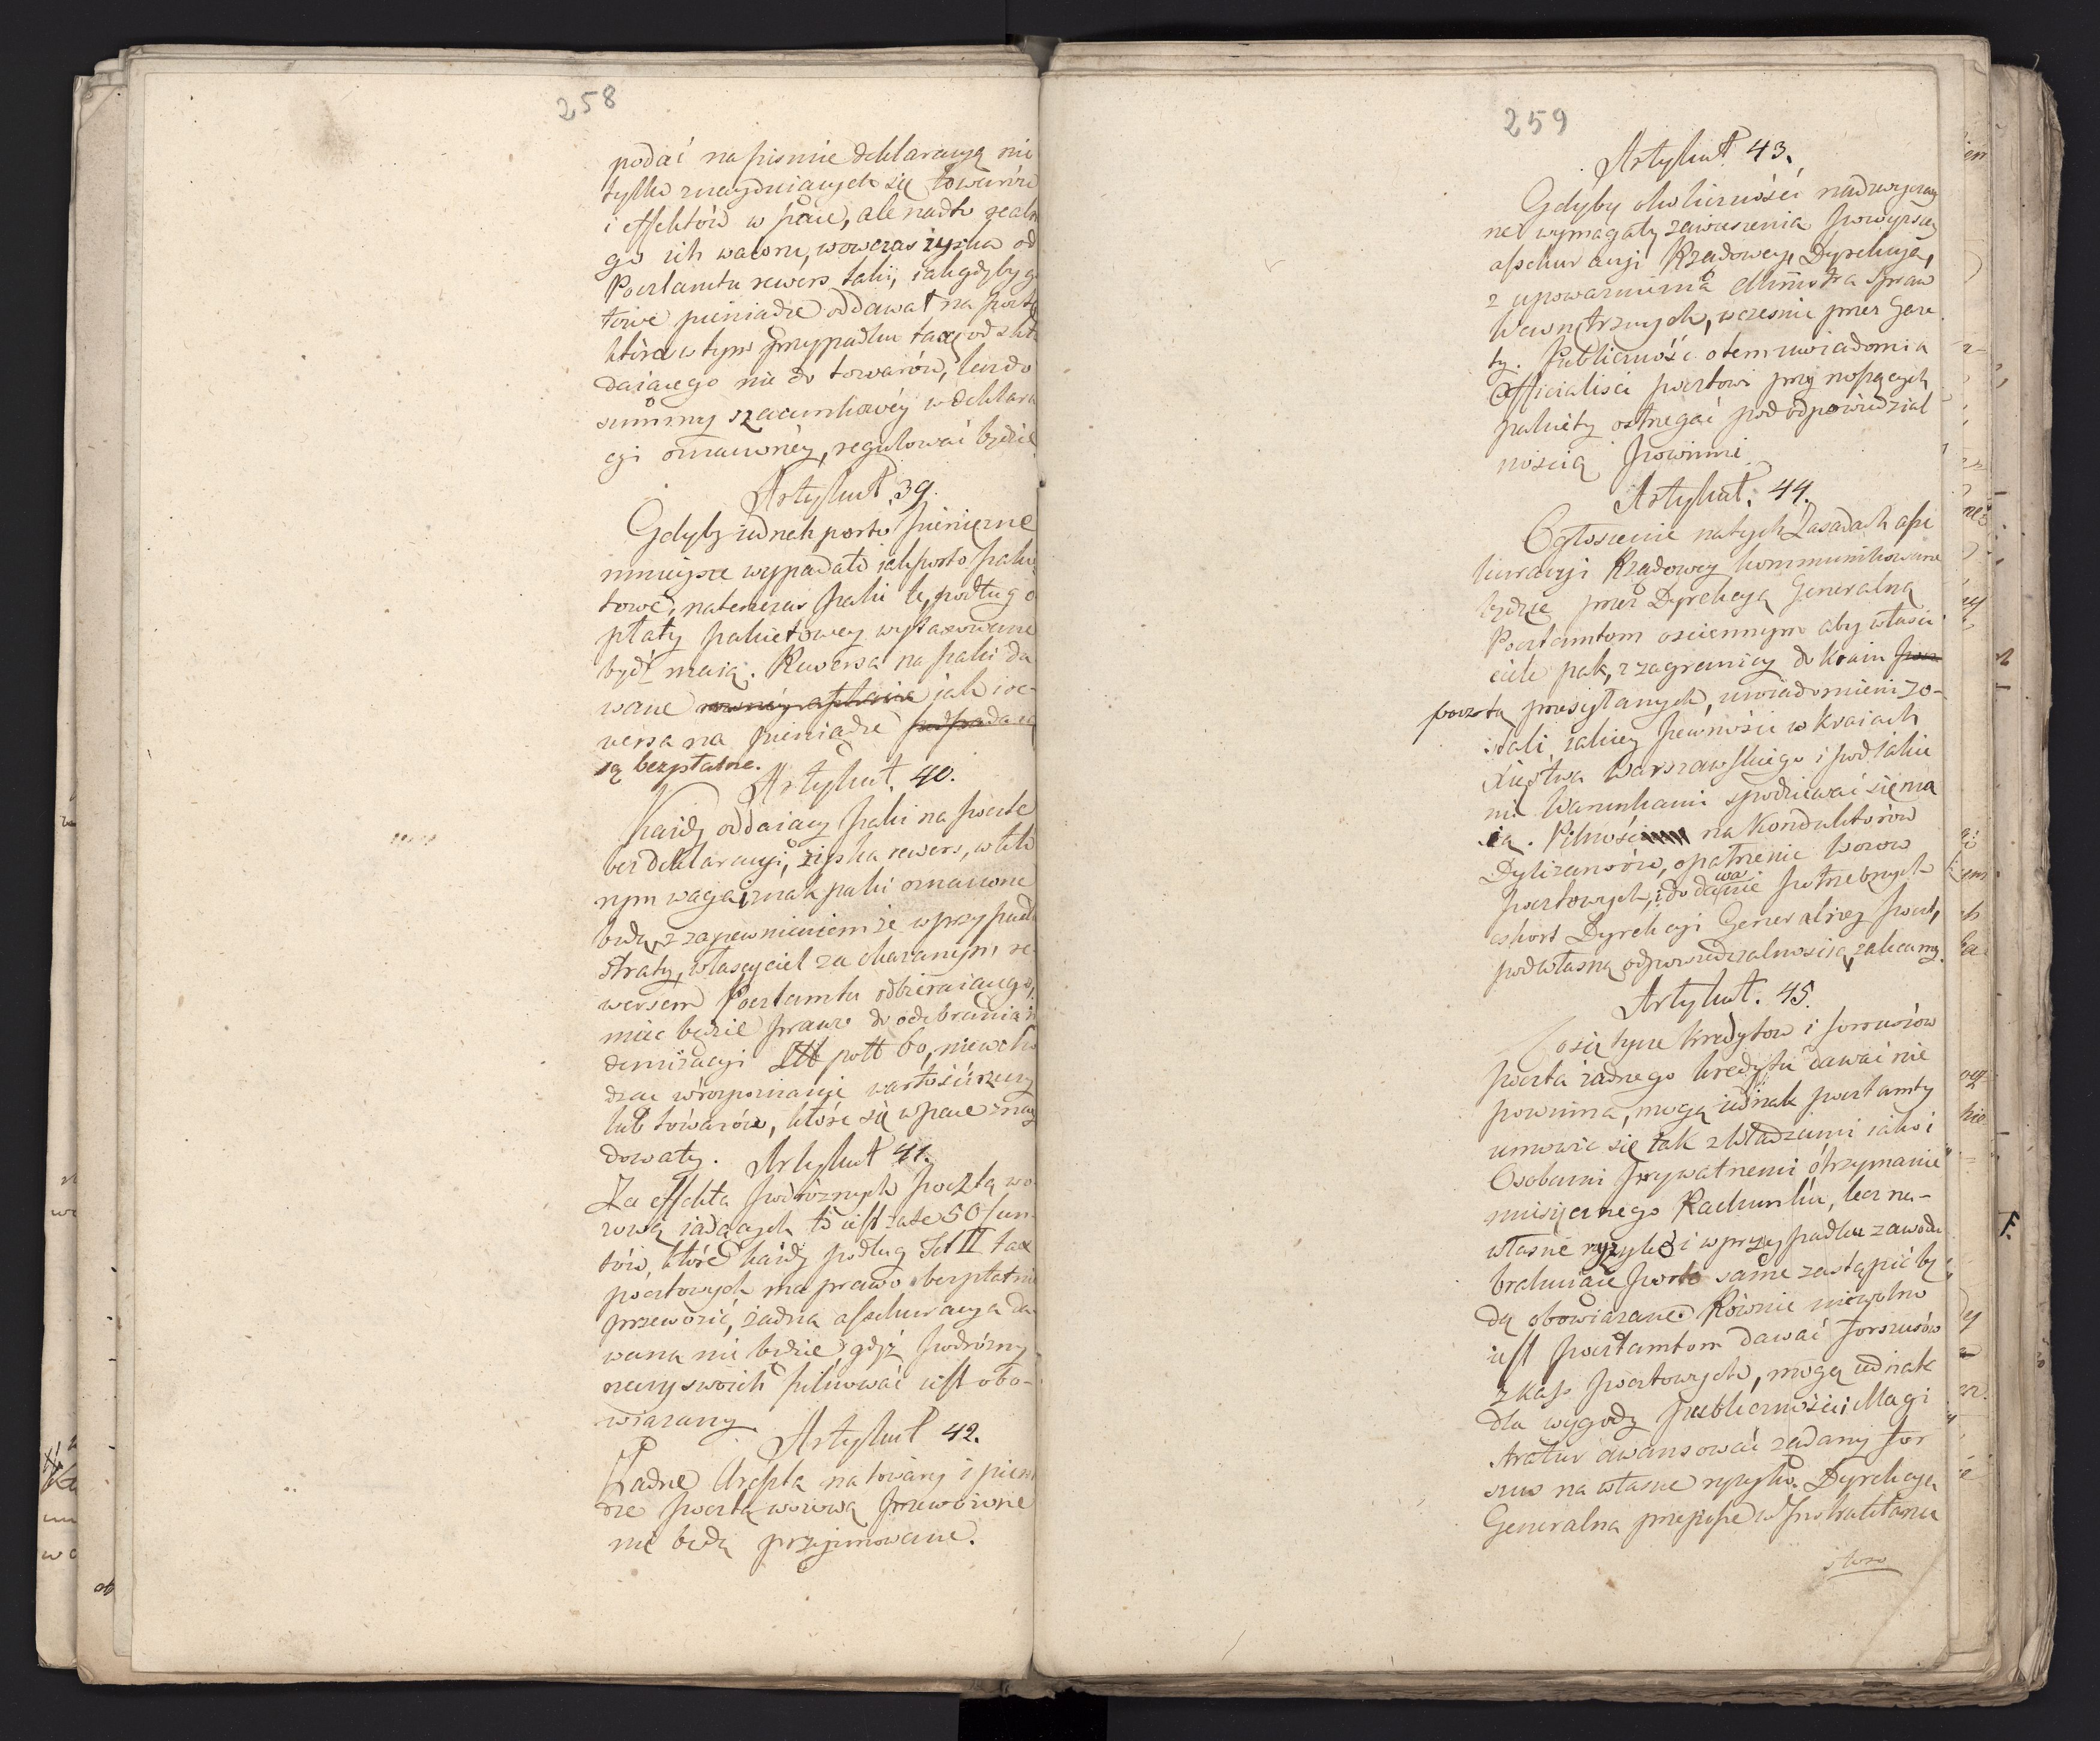 258
podać na piśmie deklaracyą nie
tylko znayduiących się towarów
i effektów w pace, ale nadto realn
go ich waloru, wowczas zyska od
Pocztamtu rewers taki, iak gdyby go
towe pieniądze oddawał na pocztę
która w tym przypadku taxę od skła
daiącego nie do towarów, lecz do
summy szacunkowéy w deklara
cyi oznaczonéy, regulować będzie
Artykuł 39.
Gdyby iednak porto pieniężne
mnieysze wypadało iak porto pakie
towe, natenczas paki te, podług o
płaty pakietowey wytaxowane
bydź maią. Rewersa na paki da
wane rowney opłacie jak re-
wersa na pieniądze podpadaią
są bezpłatne.
Artykuł. 40.
Każdy oddaiący paki na pocztę
bez deklaracyi, zyska rewers, w któ
rym waga i znak paki oznaczone
będą, z zapewnieniem że w przypadk
straty, właściciel za okazanym re
wersem Pocztamtu odbieraiącego,
mieć będzie prawo do odebrania in
demizacyi poll 60, niewcho
dząc w rozpoznanie wartości rzeczy
lub towarów, które się w pace znay
dowały.
Artykuł 41.
Za effekta podróżnych pocztą wo
zową iadących to iest za te 50 fun
tów, które każdy podług Tit II tax
pocztowych ma prawo bezpłatnie
przewozić, żadna assekuracya da
waną nie będzie gdyż podróżny
rzeczy swoich pilnować iest obo-
wiązany
Artykuł 42.
Żadne Areszta na towary i pienią
dze pocztą wozową przewożone
nie będą przyjmowane.
259
Artykuł 43.
Gdyby okoliczności nadzwyczay
ne wymagały zawieszenia powyższey
assekuracyi Rządowey, Dyrekcya,
z upoważnienia Ministra Spraw
Wewnętrznych, wcześnie przez Gaze
ty. Publiczność o tem uwiadomi a
Officialiści pocztowi przynoszących
pakiety ostrzegać pod odpowiedzial
nością powinni
Artykuł. 44.
Ogłoszenie na tych Zasadach asse
kuracyi Rządowey kommunikowane
będzie przez Dyrekcyą Generalną
Pocztamtom ościennym aby właści
ciele pak, z zagranicy do kraiu
pocztą przesyłanych, uwiadomieni zo-
stali iakiey pewności w kraiach
Xięstwa Warszawskiego i pod iakie
mi Warunkami spodziewać się ma
ią. Pilność na Konduktorów
Dyliżansów, opatrzenie wozow
pocztowych, i dodawanie potrzebnych
eskort Dyrekcyi Generalney poczt,
pod własną odpowiedzialnością zalecamy.
Artykuł. 45.
Co się tycze kredytow i forszusów
poczta żadnego kredytu dawać nie
powinna, mogą iednak pocztamty
umowić się tak z Władzami iako i
Osobami prywatnemi o trzymanie
miesięcznego Rachunku, lecz na-
własne ryzyko i w przypadku zawodu
brakuiące porto same zastąpić bę
dą obowiązane. Równie niewolno
iest pocztamtom dawać forszusów
z kass pocztowych, mogą iednak
dla wygody publiczności i Magi
stratur awansować żądany for
szus na własne ryzyko. Dyrekcya
Generalna przepisze w Instruktarzu